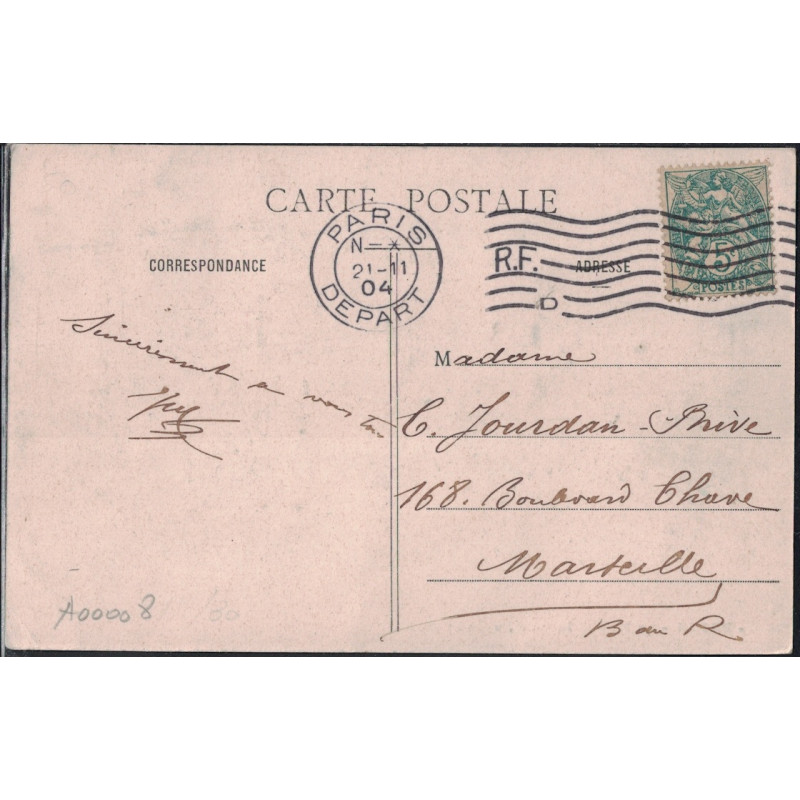 CARTE POSTALE
PARIS
N
21-11
04
DEPART
R.F.
D
5
POSTES
CORRESPONDANCE
ADRESSE
Sincèrement a vous Tous
Madame
C. Jourdan-Brive
168. Boulevard Chave
Marseille
B du R
A00008